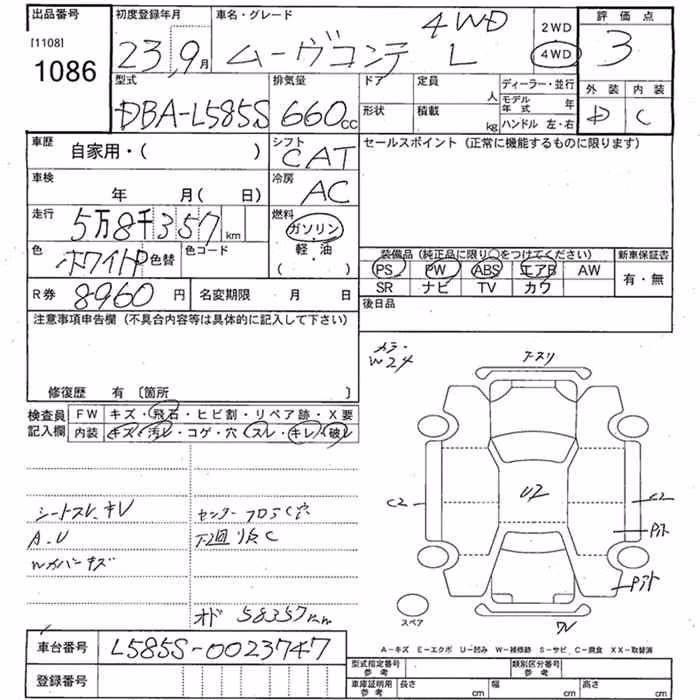 出品番号 初度登録年月 車名・グレード 4WD 2WD 評価点
[1108]
1086 23年9月 ムーヴコンテ L 4WD 3
型式 排気量 ドア 定員 人 ディーラー・並行 外装 内装
DBA-L585S 660cc 形状 積載 kg モデル年式 年 D C
ハンドル 左・右
車歴 自家用・( ) シフト CAT セールスポイント (正常に機能するものに限ります)
車検 年 月( 日) 冷房 AC
走行 5万8千357km 燃料 ガソリン
軽・油
( )
色 ホワイトP 色替 色コード 装備品(純正品に限り○をつけてください) 新車保証書
PS PW ABS エアB AW 有・無
SR ナビ TV カワ
R券 8960円 名変期限 月 日 後日品
注意事項申告欄(不具合内容等は具体的に記入して下さい)
修復歴 有〔箇所 〕
検査員記入欄 FW キズ・飛石・ヒビ割・リペア跡・X要
内装 キズ・汚レ・コゲ・穴・スレ・キレ・破レ
シートスレ、キレ
A.U
センターフロアC穴
下回り灰C
Wカバーキズ
オド 58357km
W24
U2
C2
C2
W
スペア
A-キズ E-エクボ U-凹み W-補修跡 S-サビ C-腐食 XX-取替済
車台番号 L585S-0023747
登録番号
型式指定番号 参考 類別区分番号 参考
車庫証明用 参考 長さ cm 幅 cm 高さ cm